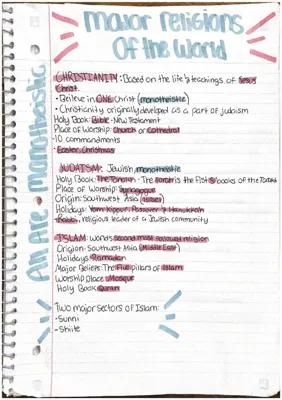 Major religions
Of the World
All Are Monotheastic
CHRISTIANITY: Based on the life & teachings of Jesus
Christ.
• Believe in ONE Christ (monotheistic)
• Christianity originally developed as a part of judaism
Holy Book: Bible • New Testament
Place of Worship: Church or Cathedral
• 10 commandments
• Easter, Christmas
JUDAISM: Jewish, monotheistic
Holy Book: The Tanakh • The is the First 5 books of the
Place of Worship: Synagogue
Origin: Southwest Asia (Israel)
Holidays: Yom Kippur, Passover & Hanukkah
Rabbi, religious leader of a Jewish community
ISLAM: world's second most followed religion
Origion: Southwest Asia (Middle East)
Holidays: Ramadan
Major Beliefs: The Five pillars of Islam
Worship Place: Mosque
Holy Book: Quran
Two major Sectors of Islam:
• Sunni
• Shiite